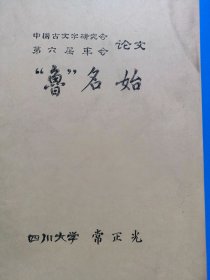 中国古文字研究会
第六届年会 论文
“魯”名始
四川大学 常正光